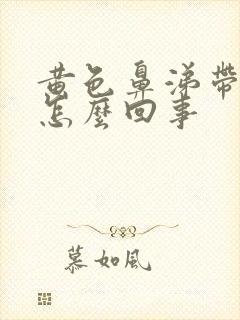 黄色鼻涕带
怎麼回事
慕如風